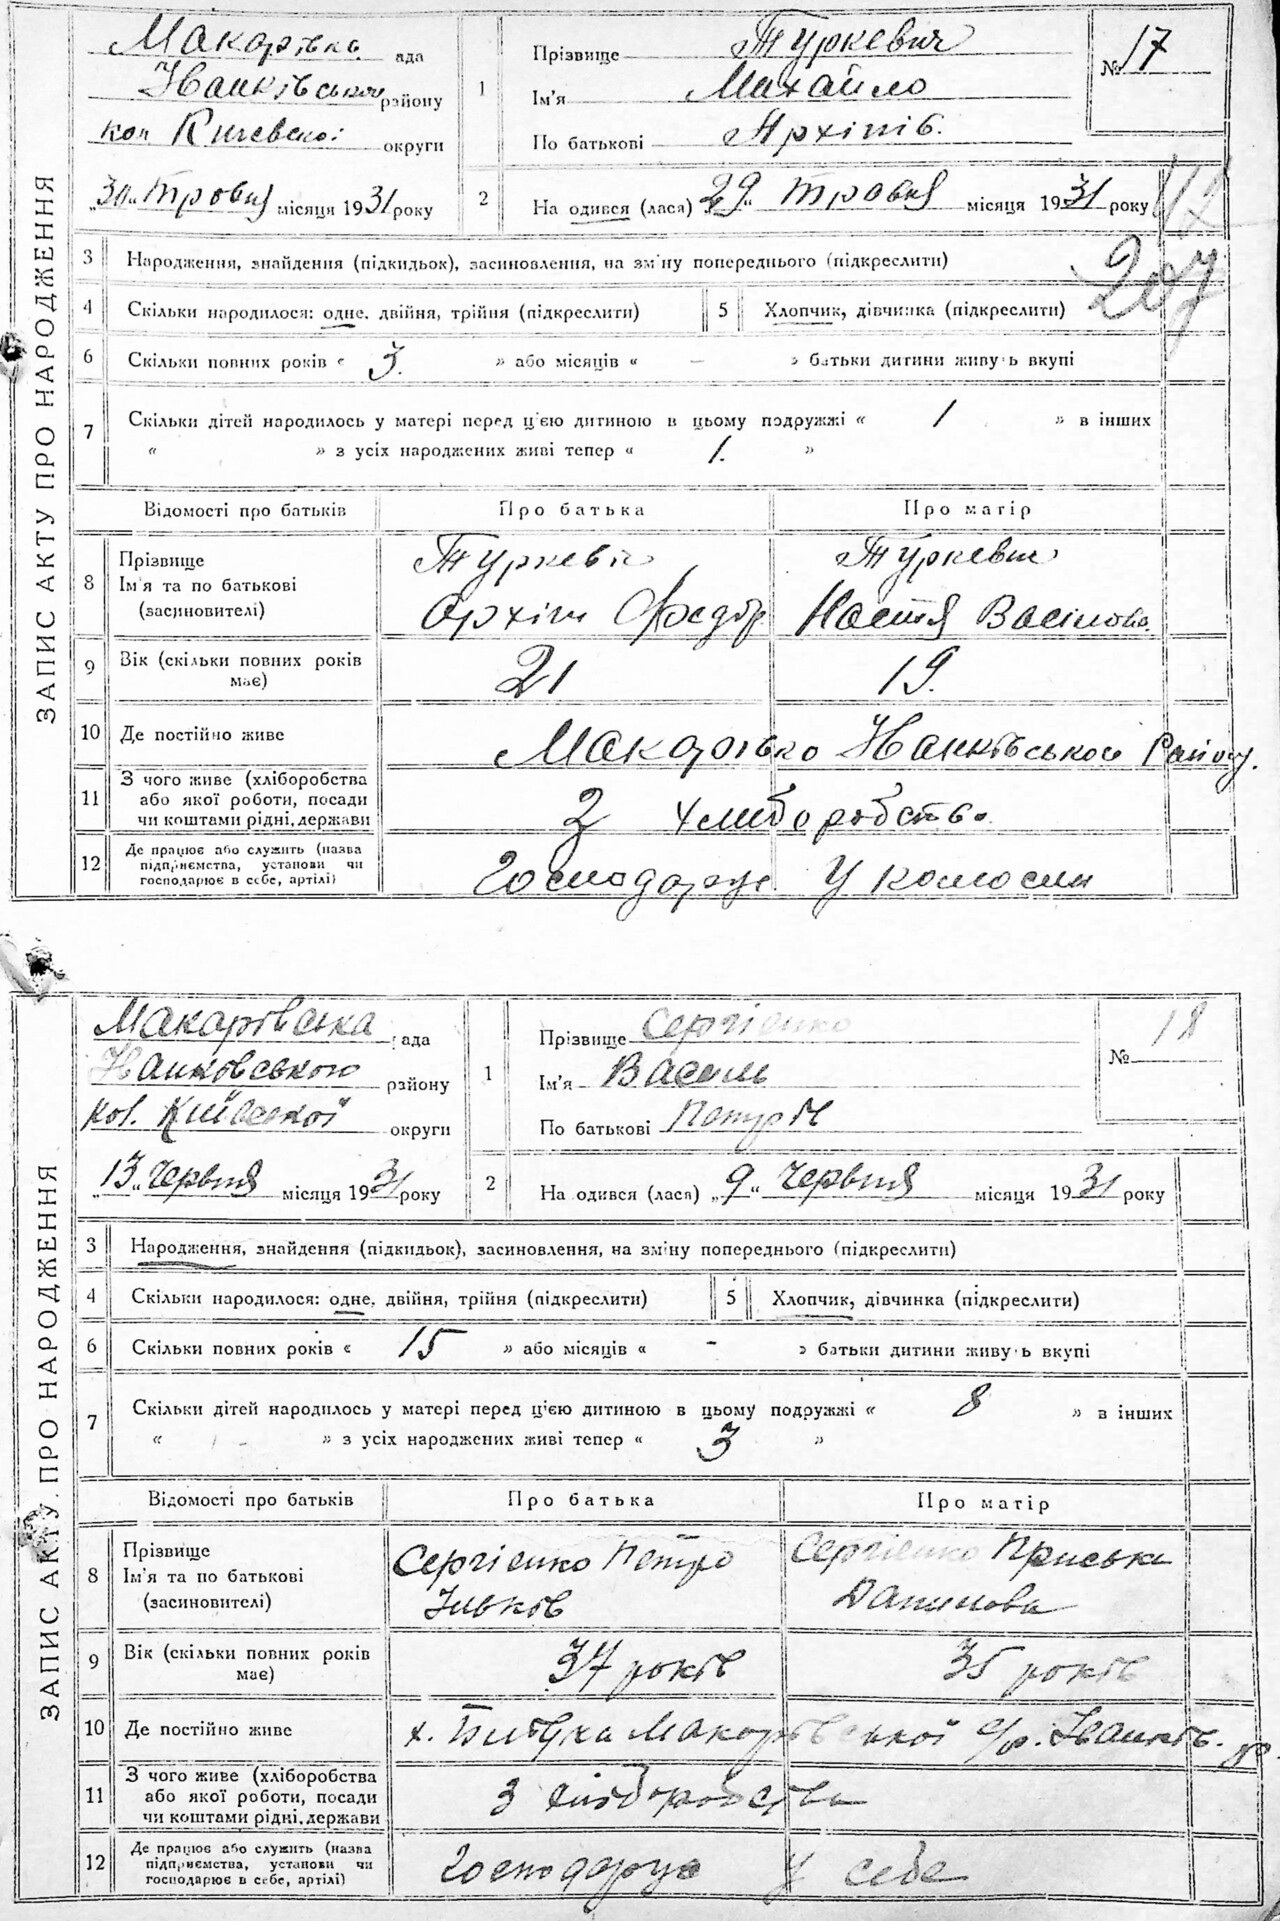 ЗАПИС АКТУ ПРО НАРОДЖЕННЯ
Макарівка ада
Іванківського району
кол Київської округи
„30“ Травня місяця 1931 року
1
Прізвище Туркевич
Ім'я Михайло
По батькові Архипів.
№ 17
2 На одився (лася) „29“ Травня місяця 1931 року
207
3 Народження, знайдення (підкидьок), засиновлення, на зміну попереднього (підкреслити)
4 Скільки народилося: одне, двійня, трійня (підкреслити) 5 Хлопчик, дівчинка (підкреслити)
6 Скільки повних років « 3. » або місяців « – » батьки дитини живуть вкупі
7 Скільки дітей народилось у матері перед цією дитиною в цьому подружжі « 1 » в інших
« » з усіх народжених живі тепер « 1. »
Відомості про батьків Про батька Про матір
8 Прізвище Ім'я та по батькові (засиновителі)
Туркевіч Туркевич
Архіп Федор Настя Василова
9 Вік (скільки повних років має) 21 19.
10 Де постійно живе Макарівка Іванківського Району.
11 З чого живе (хліборобства або якої роботи, посади чи коштами рідні, держави З хлиборобство.
12 Де працює або служить (назва підприємства, установи чи господарює в себе, артілі) Господарує у
ЗАПИС АКТУ ПРО НАРОДЖЕННЯ
Макарівська ада
Іванковського району
кол. Київської округи
„13“ Червня місяця 1931 року
1
Прізвище Сергієнко
Ім'я Василь
По батькові Петрів
№ 18
2 На одився (лася) „9“ Червня місяця 1931 року
3 Народження, знайдення (підкидьок), засиновлення, на зміну попереднього (підкреслити)
4 Скільки народилося: одне, двійня, трійня (підкреслити) 5 Хлопчик, дівчинка (підкреслити)
6 Скільки повних років « 15 » або місяців « - » батьки дитини живуть вкупі
7 Скільки дітей народилось у матері перед цією дитиною в цьому подружжі « 8 » в інших
« - » з усіх народжених живі тепер « 3 »
Відомості про батьків Про батька Про матір
8 Прізвище Ім'я та по батькові (засиновителі)
Сергієнко Петро Сергієнко Приська
Ільків Данилова
9 Вік (скільки повних років має) 37 років 35 років
10 Де постійно живе х. Макарівської с/р. Іванків. р.
11 З чого живе (хліборобства або якої роботи, посади чи коштами рідні, держави З хліборобства
12 Де працює або служить (назва підприємства, установи чи господарює в себе, артілі) Господарує у себе